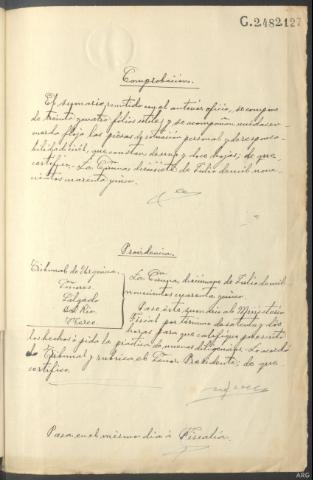 G.2482127
Comprobación.
El sumario remitido con el anterior oficio, se compone
de treinta y cuatro folios útiles, y se acompañan unidas en-
cuerda floja las piezas de situación personal y de responsa-
bilidad civil, que constan de una y dos hojas; de que
certifico.- La Coruña, diecisiete de Julio de mil nove-
cientos cuarenta y cinco.
Providencia.
Tribunal de Urgencia
Señores
Salgado
del Río
La Coruña, diecinueve de Julio de mil
novecientos cuarenta y cinco.
Pase este sumario al Ministerio
Fiscal por término de setenta y dos
horas para que califique previamente
los hechos ó pida la práctica de nuevas diligencias. Lo acordó
el Tribunal y rubrica el Señor Presidente; de que
certifico.
Pasa en el mismo día á Fiscalía.
ARG